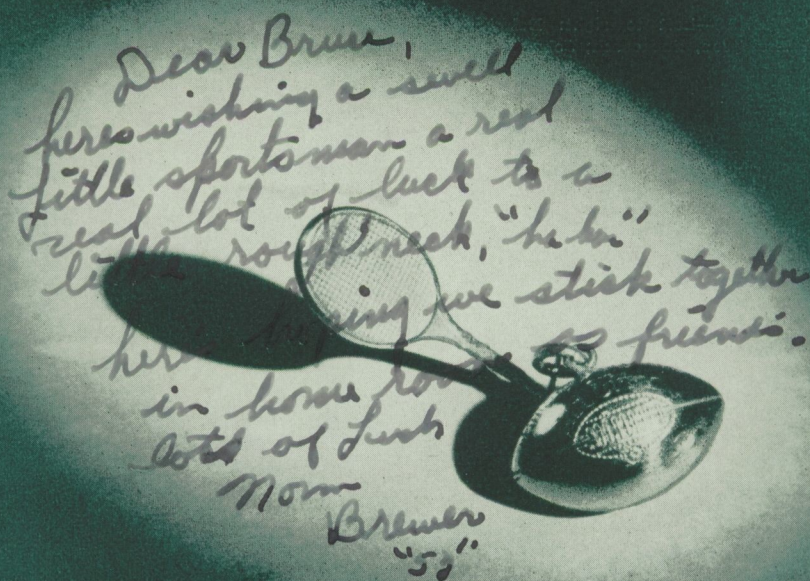 Dear Bruce,
heres wishing a swell
little sportsman a real
real lot of luck to a
little rough neck, "ha ha"
here's hoping we stick together
in home room as friends.
lots of Luck
Norm
Brewer